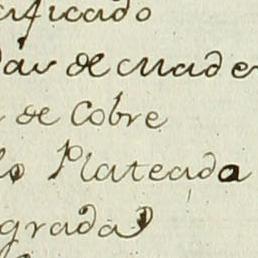 ificado
das de Made
de Cobre
lo Plateada
grada